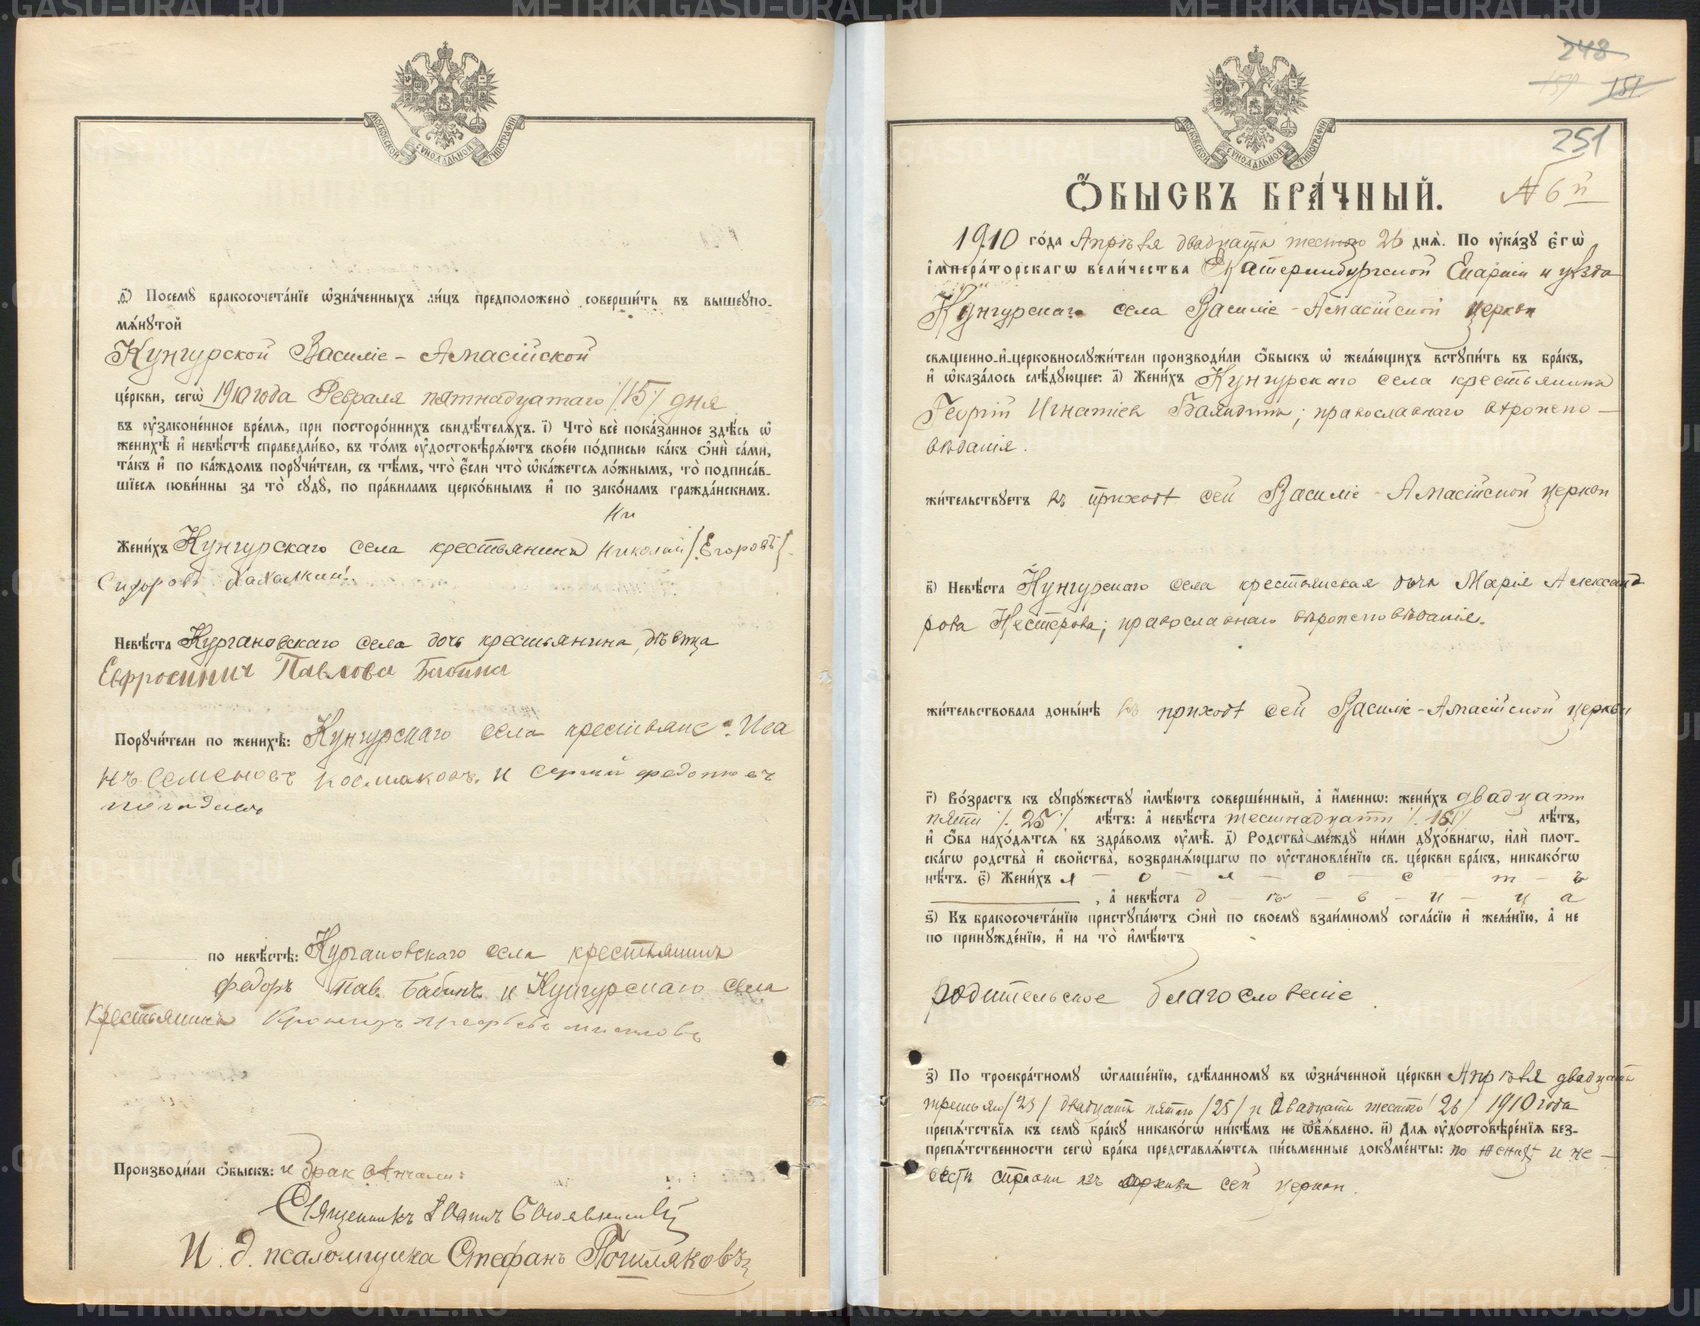 МОСКОВСКОЙ СѴНОДАЛЬНОЙ ТИПОГРАФІИ
д҃) Посемꙋ бракосочета́нїе ѡ҆зна́ченныхъ ли́цъ предположено̀ соверши́ть въ вышеꙋпо-
мѧ́нꙋтой
Кунгурской Василіе-Амасійской
це́ркви, сегѡ̀ 1910 года Февраля пятнадцатаго /15/ дня
въ ᲂу҆зако́ненное вре́мѧ, при посторо́ннихъ свидѣ́телѧхъ. і҃) Что̀ всѐ пока́занное здѣ́сь ѡ҆
женихѣ̀ и҆ невѣ́стѣ справедли́во, въ то́мъ ᲂу҆достовѣрѧ́ютъ свое́ю по́дписью ка́къ ѻ҆нѝ са́ми,
та́къ и҆ по ка́ждомъ порꙋчи́тели, съ тѣ́мъ, что̀ є҆́сли что̀ ѡ҆ка́жетсѧ ло́жнымъ, то̀ подписа́в-
шїесѧ пови́нны за то̀ сꙋдꙋ̀, по пра́виламъ церко́внымъ и҆ по зако́намъ гражда́нскимъ.
Ни
Жени́хъ Кунгурскаго села крестьянинъ Николай /Егоровъ/
Сидоровъ
Невѣ́ста Кургановскаго села дочь крестьянина, дѣвица
Евфросинія Павлова Бабина
Порꙋчи́тели по женихѣ̀: Кунгурскаго села крестьяне: Ива
нъ Семеновъ и Сергий
по невѣ́стѣ: Кургановскаго села крестьянинъ
Федоръ Пав. Бабинъ и Кунгурскаго села
Крестьянинъ
Производи́ли ѻ҆́быскъ: и Бракъ вѣнчали:
Священникъ Іоаннъ Богоявленскій
И. д. псаломщика Стефанъ
248
151
251
МОСКОВСКОЙ СѴНОДАЛЬНОЙ ТИПОГРАФІИ
Ѻ҆БЫСКЪ БРА́ЧНЫЙ. № 6й
1910 го́да Апрѣля двадцать шестаго 26 днѧ̀. По ᲂу҆ка́зꙋ є҆гѡ̀
і҆мпера́торскагѡ вели́чества Екатеринбургской Епархіи и уѣзда
Кунгурскаго села Василіе-Амасійской церкви
свѧще́нно-и҆-церковнослꙋжи́тели производи́ли ѻ҆́быскъ ѡ҆ жела́ющихъ встꙋпи́ть въ бра́къ,
и҆ ѡ҆каза́лось слѣ́дꙋющее: а҃) Жени́хъ Кунгурскаго села крестьянинъ
Георгій Игнатіев Балыдинъ; православнаго вѣроиспо-
вѣданія.
жи́тельствꙋетъ въ приходѣ сей Василіе-Амасійской церкви
в҃) Невѣ́ста Кунгурскаго села крестьянская дочь Марія Александ
рова Нестерова; православнаго вѣроисповѣданія.
жи́тельствовала доны́нѣ въ приходѣ сей Василіе-Амасійской церкви
г҃) Во́зрастъ къ сꙋпрꙋ́жествꙋ и҆мѣ́ютъ соверше́нный, а҆ и҆́меннѡ: жени́хъ двадцати
пяти /25/ лѣ́тъ: а҆ невѣ́ста шестнадцати /16/ лѣ́тъ,
и҆ ѻ҆́ба нахо́дѧтсѧ въ здра́вомъ ᲂу҆мѣ̀. д҃) Родства̀ междꙋ̀ ни́ми дꙋхо́внагѡ, и҆лѝ плот-
ска́гѡ родства̀ и҆ сво́йства̀, возбранѧ́ющагѡ по ᲂу҆становле́нїю св. це́ркви бра́къ, никако́гѡ
нѣ́тъ. є҃) Жени́хъ х - о - л - о - с - т - ъ
, а҆ невѣ́ста д - ѣ - в - и - ц - а
ѕ҃) Къ бракосочета́нїю пристꙋпа́ютъ ѻ҆нѝ по своемꙋ̀ взаи́мномꙋ согла́сїю и҆ жела́нїю, а҆ не
по принꙋжде́нїю, и҆ на то̀ и҆мѣ́ютъ
родительское благословеніе.
з҃) По троекра́тномꙋ ѡ҆глаше́нїю, сдѣ́ланномꙋ въ ѡ҆зна́ченной це́ркви Апрѣля двадцать
третьяго /23/ двадцать пятого /25/ и двадцать шестого /26/ 1910 года
препѧ́тствїѧ къ семꙋ̀ бра́кꙋ никако́гѡ никѣ́мъ не ѡ҆б̾ѧ́влено. и҃) Длѧ̀ ᲂу҆достовѣре́нїѧ без-
препѧ́тственности сегѡ̀ бра́ка представлѧ́ютсѧ пи́сьменные докꙋме́нты: по женихѣ и не-
вѣстѣ справки изъ архива сей церкви.
METRIKI.GASO-URAL.RU